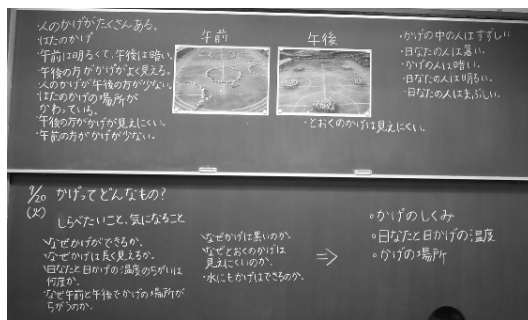 ・人のかげがたくさんある。
・はたのかげ
・午前は明るくて、午後は暗い。
・午後の方がかげがよく見える。
・人のかげが午後の方が少ない。
・はたのかげの場所が
かわっている。
・午後の方がかげが見えにくい。
・午前の方がかげが少ない。
午前
午後
・とおくのかげは見えにくい。
・かげの中の人はすずしい
・日なたの人は暑い。
・かげの人は暗い。
・日なたの人は明るい。
・日なたの人はまぶしい。
9/20
(火)
かげってどんなもの?
しらべたいこと、気になること
・なぜかげができるか。
・なぜかげは長く見えるか。
・日なたと日かげの温度のちがいは
何度か。
・なぜ午前と午後でかげの場所が
ちがうのか。
・なぜかげは黒いのか。
・なぜとおくのかげは
見えにくいのか。
・水にもかげはできるのか。
⇒
・かげのしくみ
・日なたと日かげの温度
・かげの場所